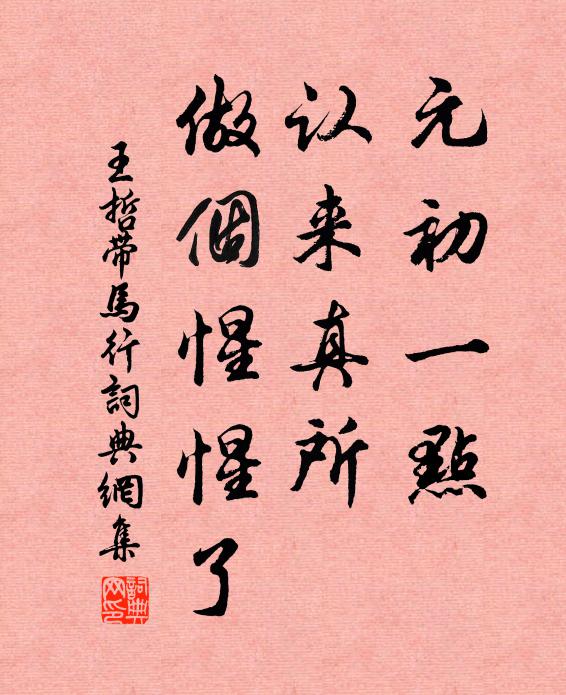 元初一點
认来真所
做個惺惺了
王哲带馬行詞典網集
詞典网印